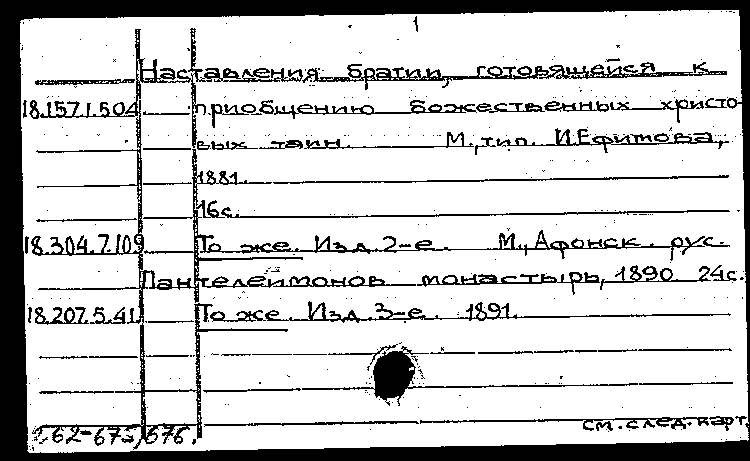 1
Наставления братии, готовящейся к
18.157.1.504 приобщению божественных христо-
вых таин. М., тип. И.Ефимова,
1881.
16с.
18.304.7.109 То же. Изд. 2-е. М., Афонск. рус.
Пантелеймонов монастырь, 1890 24с.
18.207.5.41 То же. Изд. 3-е. 1891.
см. след. карт.
62-675,676.